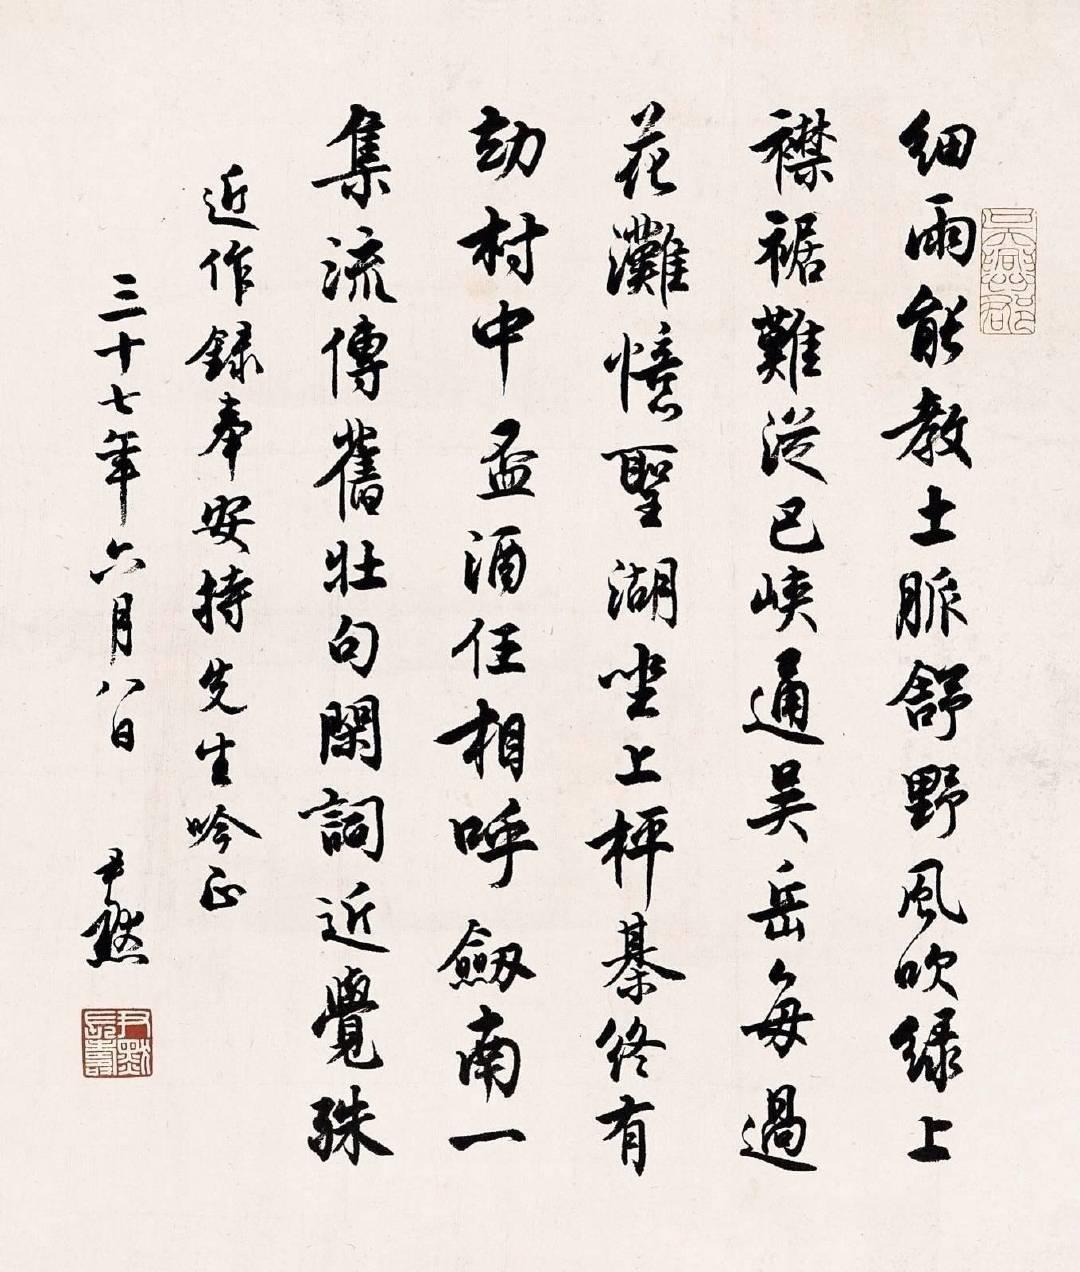 細雨能教土脈舒野風吹綠上
襟裾難從巴峽通吳岳每過
花灘憶聖湖坐上枰棊終有
劫村中盃酒任相呼劔南一
集流傳舊壯句閑詞近覺殊
近作録奉安持先生吟正
三十七年六月八日 尹默
尹默長壽